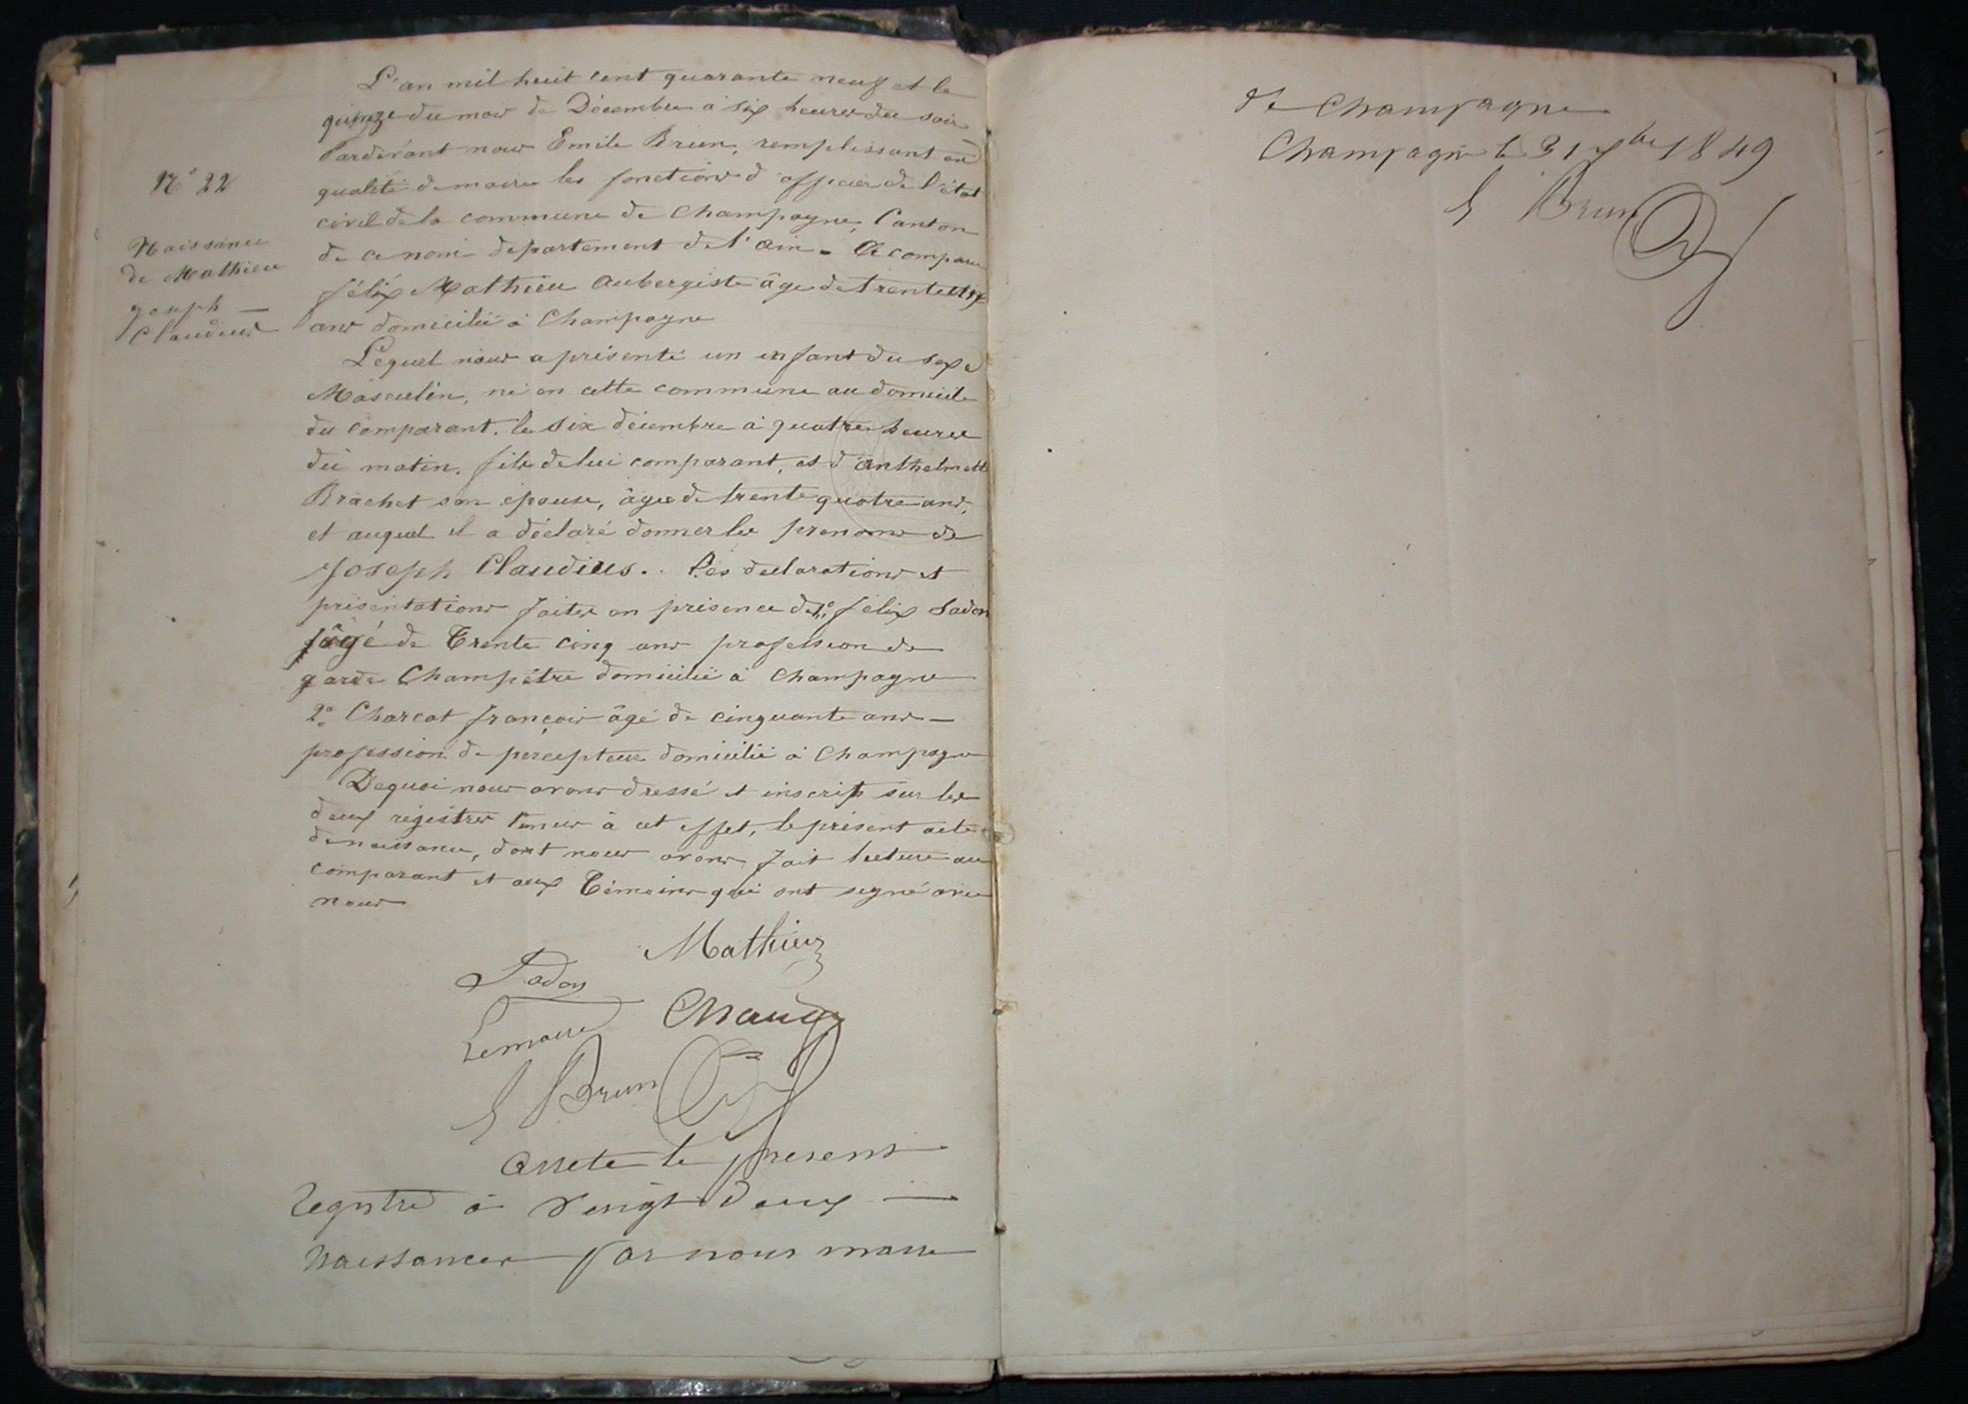 N° 22
Naissance
de Mathieu
Joseph —
Claudius
L'an mil huit cent quarante neuf et le
quinze du mois de Décembre à six heures du soir
Pardevant nous Emile Brun, remplissant en
qualité de maire les fonctions d'officier de l'état
civil de la commune de Champagne, Canton
de ce nom département de l'ain. A comparu
félix Mathieu Aubergiste âgé de trente
ans domicilié à Champagne
Lequel nous a présenté un enfant du sexe
Masculin, né en cette commune au domicile
du comparant. le six décembre à quatre heures
du matin. fils de lui comparant, et d'anthelmette
Brachet son épouse, âgée de trente quatre ans,
et auquel il a déclaré donner les prenoms de
Joseph Claudius. Les declarations et
présentations faites en présence de 1° félix Sadon
âgé de Trente cinq ans profession de
garde Champêtre domicilié à Champagne
2° Charcot françois âgé de cinquante ans —
profession de percepteur domicilié à Champagne
Dequoi nous avons dressé et inscrit sur les
deux régistres tenus à cet effet, le présent acte
de naissance, dont nous avons fait lecture au
comparant et aux Témoins qui ont signé avec
nous
Mathieu
Sadon
Le maire
E Brun
Arrete le present
registre à vingt deux —
Naissances par nous maire
de Champagne
Champagne le 31 Xbre 1849
E Brun